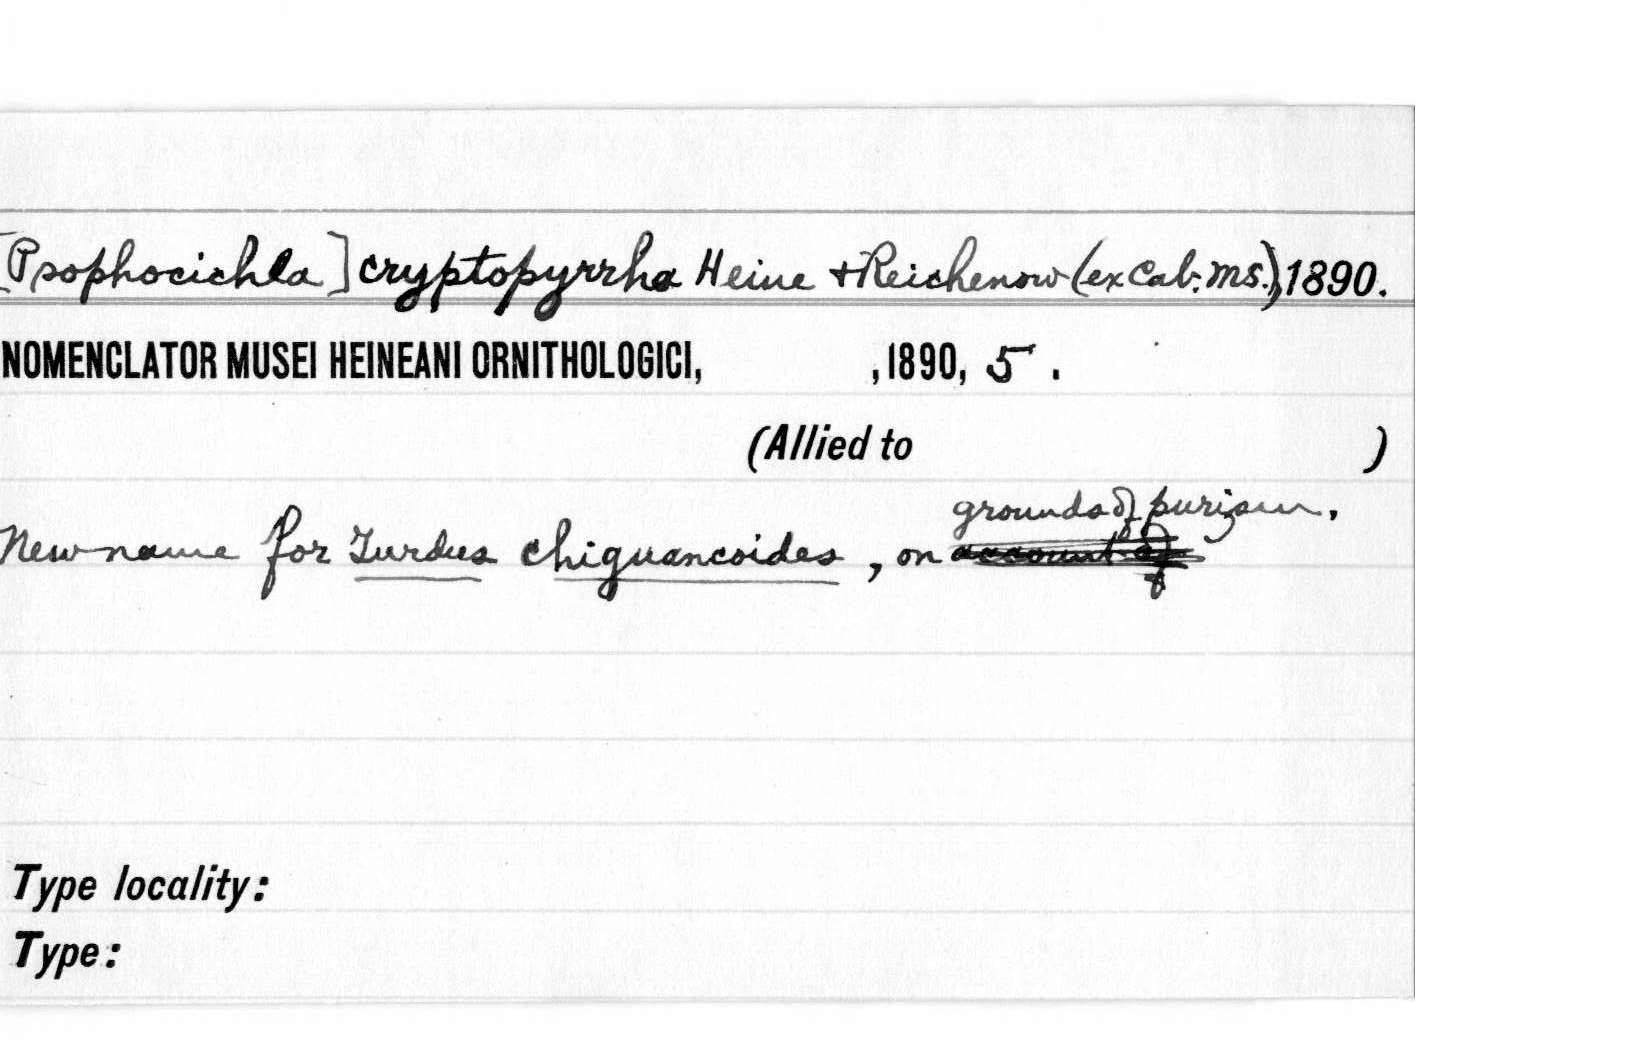 [Psophocichla] cryptopyrrha Heine + Reichenow (ex Cab. MS.), 1890.
NOMENCLATOR MUSEI HEINEANI ORNITHOLOGICI, , 1890, 5 .
(Allied to )
grounds of purism.
New name for Turdus chiguancoides, on account of
Type locality:
Type: